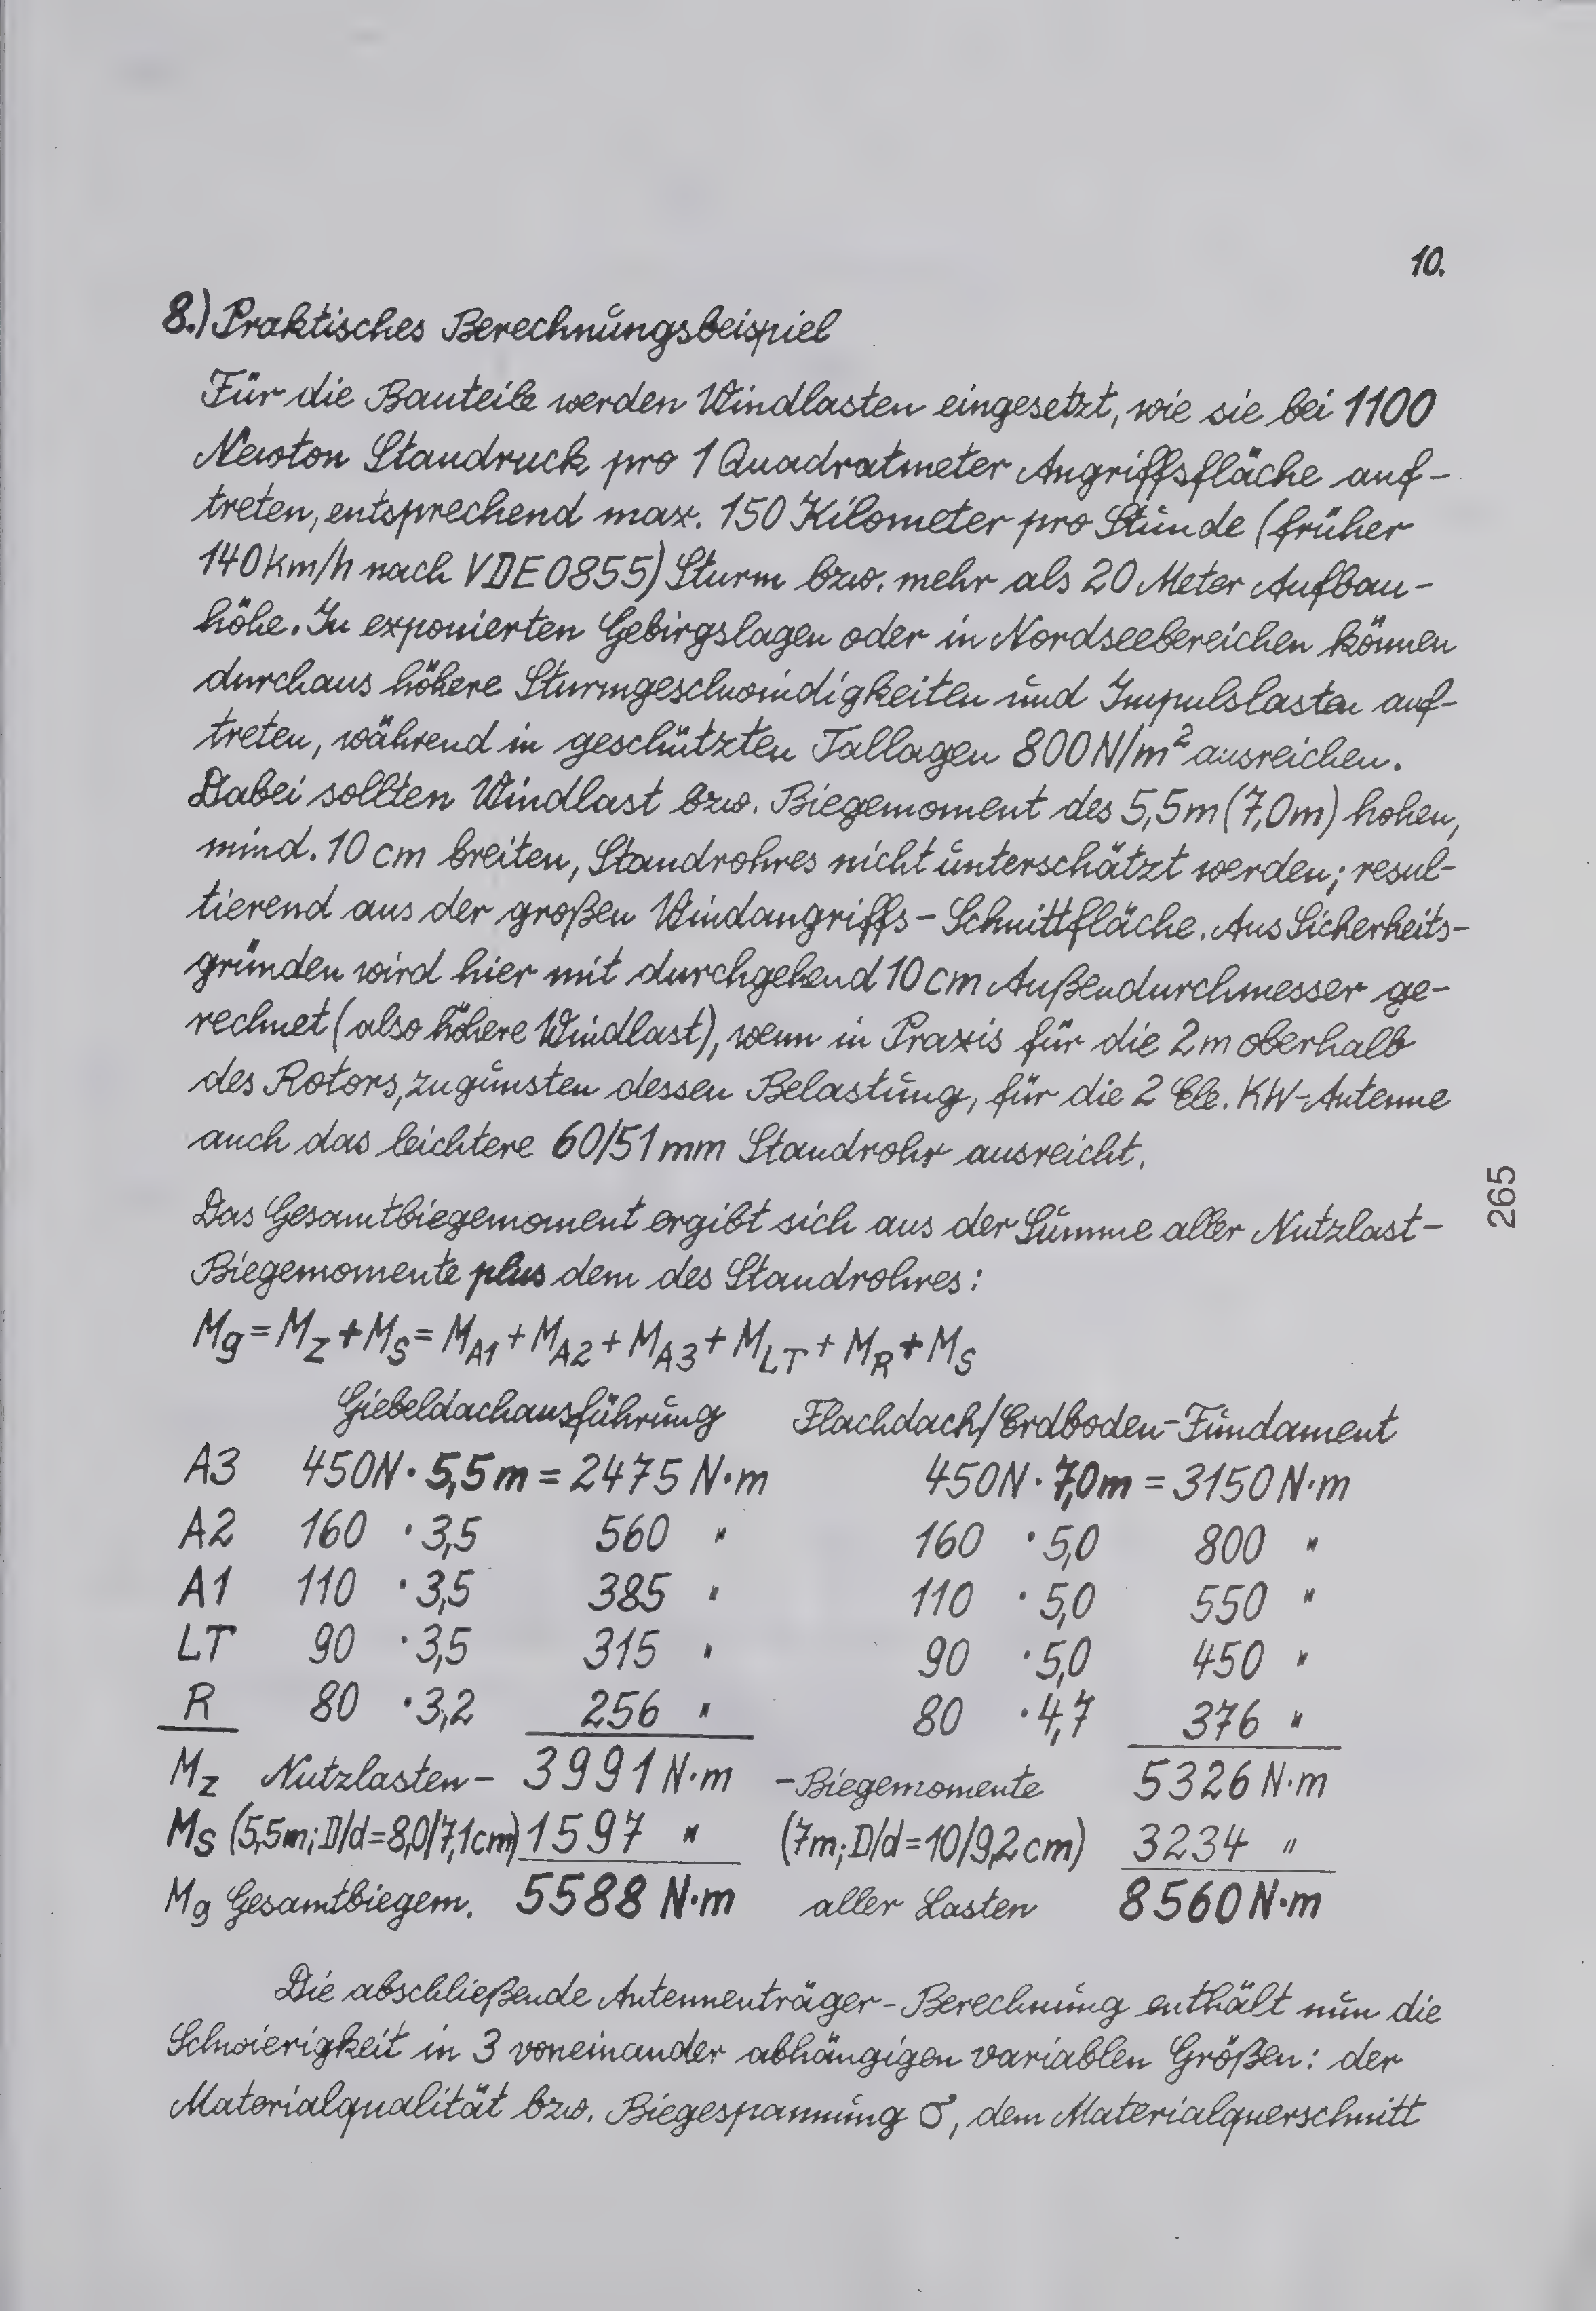 10.
8.) Praktisches Berechnungsbeispiel
Für die Bauteile werden Windlasten eingesetzt, wie sie bei 1100
Newton Staudruck pro 1 Quadratmeter Angriffsfläche auf-
treten, entsprechend max. 150 Kilometer pro Stunde (früher
140 km/h nach VDE 0855) Sturm bzw. mehr als 20 Meter Aufbau-
höhe. In exponierten Gebirgslagen oder in Nordseebereichen können
durchaus höhere Sturmgeschwindigkeiten und Impulslasten auf-
treten, während in geschützten Tallagen 800 N/m² ausreichen.
Dabei sollten Windlast bzw. Biegemoment des 5,5m (7,0m) hohen,
mind. 10 cm breiten, Standrohres nicht unterschätzt werden; resul-
tierend aus der großen Windangriffs-Schnittfläche. Aus Sicherheits-
gründen wird hier mit durchgehend 10 cm Außendurchmesser ge-
rechnet (also höhere Windlast), wenn in Praxis für die 2m oberhalb
des Rotors, zugunsten dessen Belastung, für die 2 Ele. KW-Antenne
auch das leichtere 60/51 mm Standrohr ausreicht.
Das Gesamtbiegemoment ergibt sich aus der Summe aller Nutzlast-
Biegemomente plus dem des Standrohres:
Mg = MZ + MS = MA1 + MA2 + MA3 + MLT + MR + MS
Giebeldachausführung Flachdach/Erdboden-Fundament
A3 450N · 5,5m = 2475 N·m 450N · 7,0m = 3150 N·m
A2 160 · 3,5 560 " 160 · 5,0 800 "
A1 110 · 3,5 385 " 110 · 5,0 550 "
LT 90 · 3,5 315 " 90 · 5,0 450 "
R 80 · 3,2 256 " 80 · 4,7 376 "
MZ Nutzlasten- 3991 N·m -Biegemomente 5326 N·m
MS (5,5m; D/d=8,0/7,1cm) 1597 " (7m; D/d=10/9,2cm) 3234 "
Mg Gesamtbiegem. 5588 N·m aller Lasten 8560 N·m
Die abschließende Antennenträger-Berechnung enthält nun die
Schwierigkeit in 3 voneinander abhängigen variablen Größen: der
Materialqualität bzw. Biegespannung σ, dem Materialquerschnitt
265